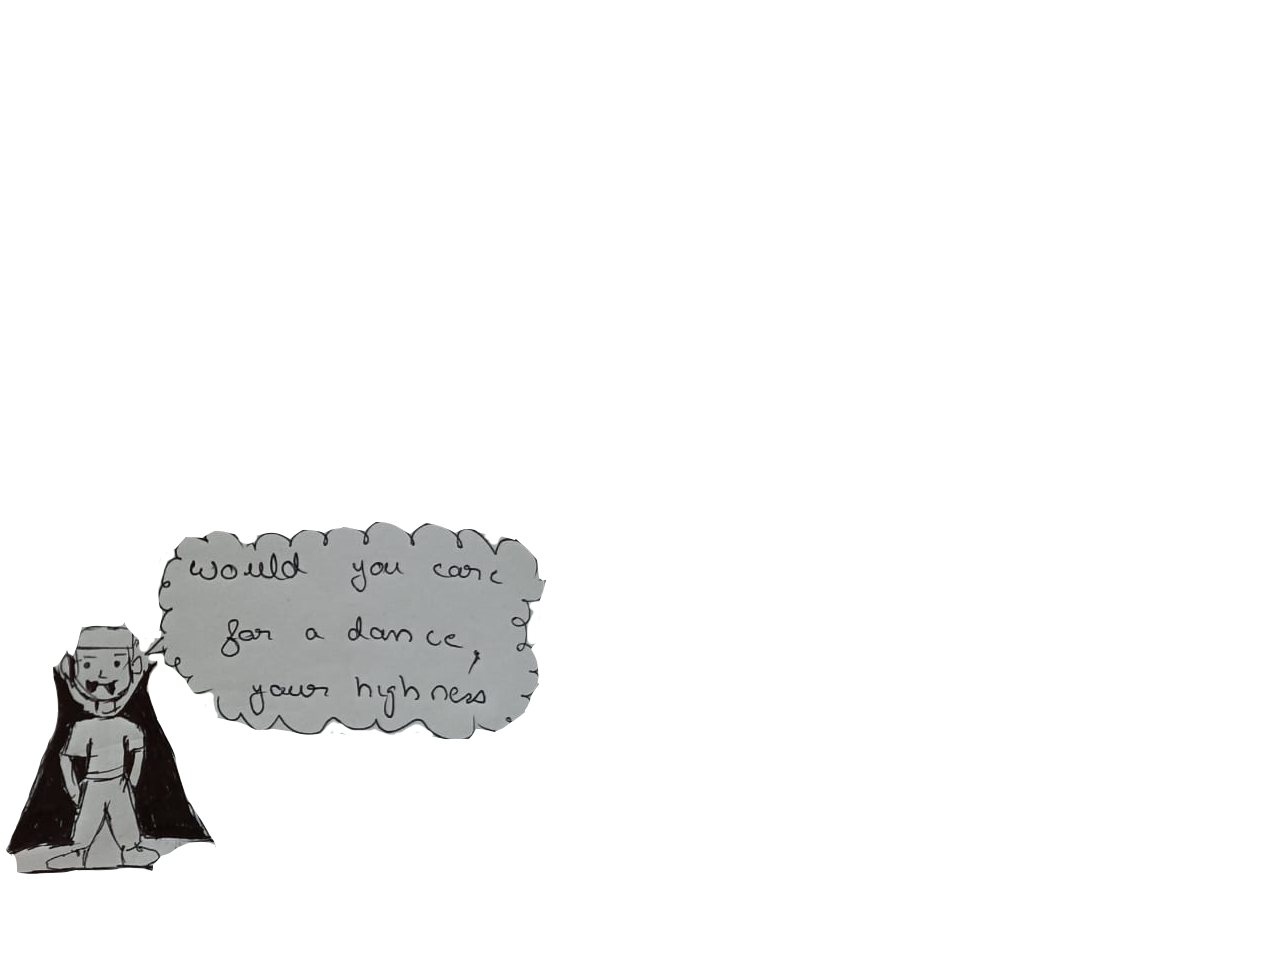 would you care
for a dance,
your highness